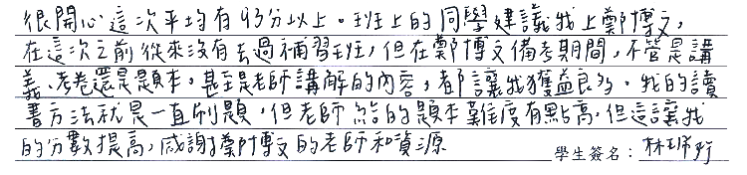 很開心這次平均有93分以上。班上的同學建議我上鄭博文,
在這次之前從來沒有去過補習班,但在鄭博文備考期間,不管是講
義、考卷還是題本,甚至是老師講解的內容,都讓我獲益良多。我的讀
書方法就是一直刷題,但老師給的題本難度有點高,但這讓我
的分數提高,感謝鄭博文的老師和資源
學生簽名:林